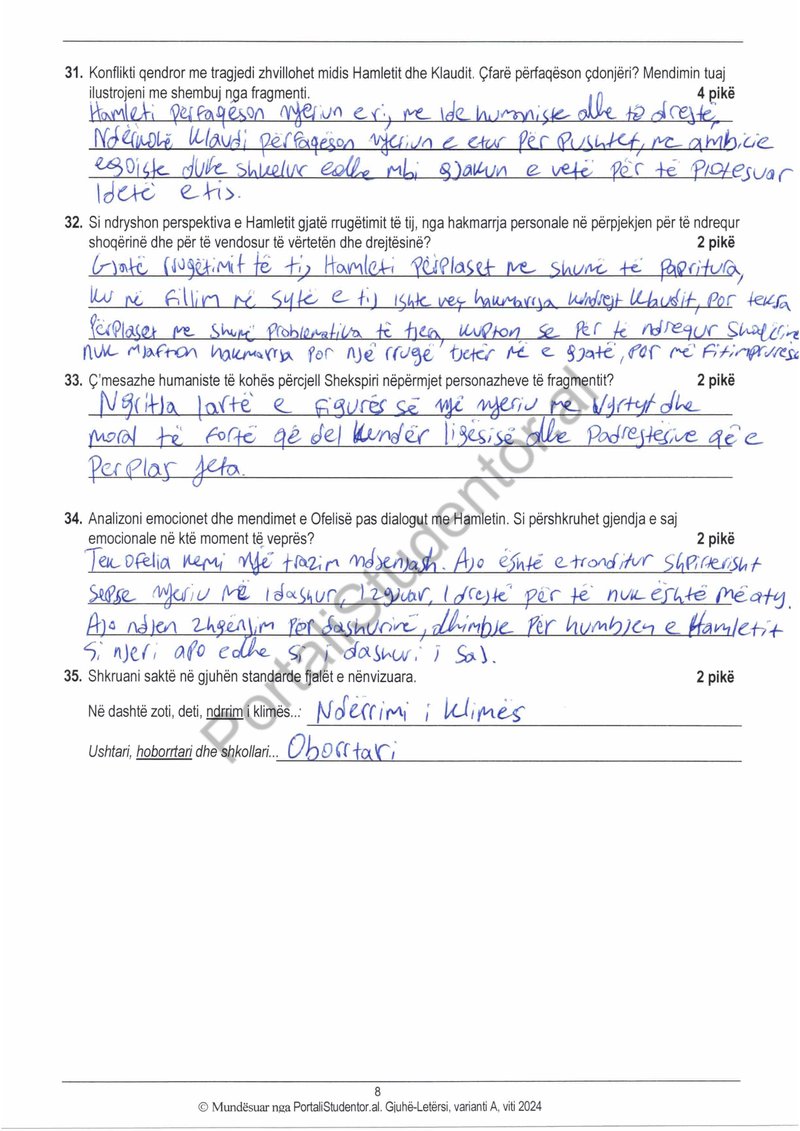 31. Konflikti qendror me tragjedi zhvillohet midis Hamletit dhe Klaudit. Çfarë përfaqëson çdonjëri? Mendimin tuaj
ilustrojeni me shembuj nga fragmenti. 4 pikë
Hamleti përfaqëson njeriun e ri, me ide humaniste dhe të drejtë,
Ndërkohë Klaudi përfaqëson njeriun e etur për pushtet, me ambicie
egoiste duke shkelur edhe mbi gjakun e vetë për të
Idetë e tis.
32. Si ndryshon perspektiva e Hamletit gjatë rrugëtimit të tij, nga hakmarrja personale në përpjekjen për të ndrequr
shoqërinë dhe për të vendosur të vërtetën dhe drejtësinë? 2 pikë
Gjatë rrugëtimit të tij Hamleti përplaset me shumë të papritura,
ku në fillim në sytë e tij ishte veç hakmarrja kundrejt Klaudit, por teksa
përplaset me shumë problematika të tjera, kupton se për të ndrequr
nuk mjafton hakmarrja por një rrugë tjetër më e gjatë, por më
33. Ç'mesazhe humaniste të kohës përcjell Shekspiri nëpërmjet personazheve të fragmentit? 2 pikë
Ngritja lartë e figurës së një njeriu me dhe
moral të fortë që del kundër ligësisë dhe padrejtësive që e
perplas jeta.
34. Analizoni emocionet dhe mendimet e Ofelisë pas dialogut me Hamletin. Si përshkruhet gjendja e saj
emocionale në ktë moment të veprës? 2 pikë
Tek Ofelia kemi një trazim ndjenjash. Ajo është e tronditur shpirtërisht
sepse njeriu më i dashur, i zgjuar, i drejtë për të nuk është më aty.
Ajo ndjen zhgënjim për dashurinë, dhimbje për humbjen e Hamletit
si njeri apo edhe si i dashuri i saj.
35. Shkruani saktë në gjuhën standarde fjalët e nënvizuara. 2 pikë
Në dashtë zoti, deti, ndrrim i klimës..: Ndërrimi i klimës
Ushtari, hoborrtari dhe shkollari... Oborrtari
PortaliStudentor.al
8
© Mundësuar nga PortaliStudentor.al. Gjuhë-Letërsi, varianti A, viti 2024